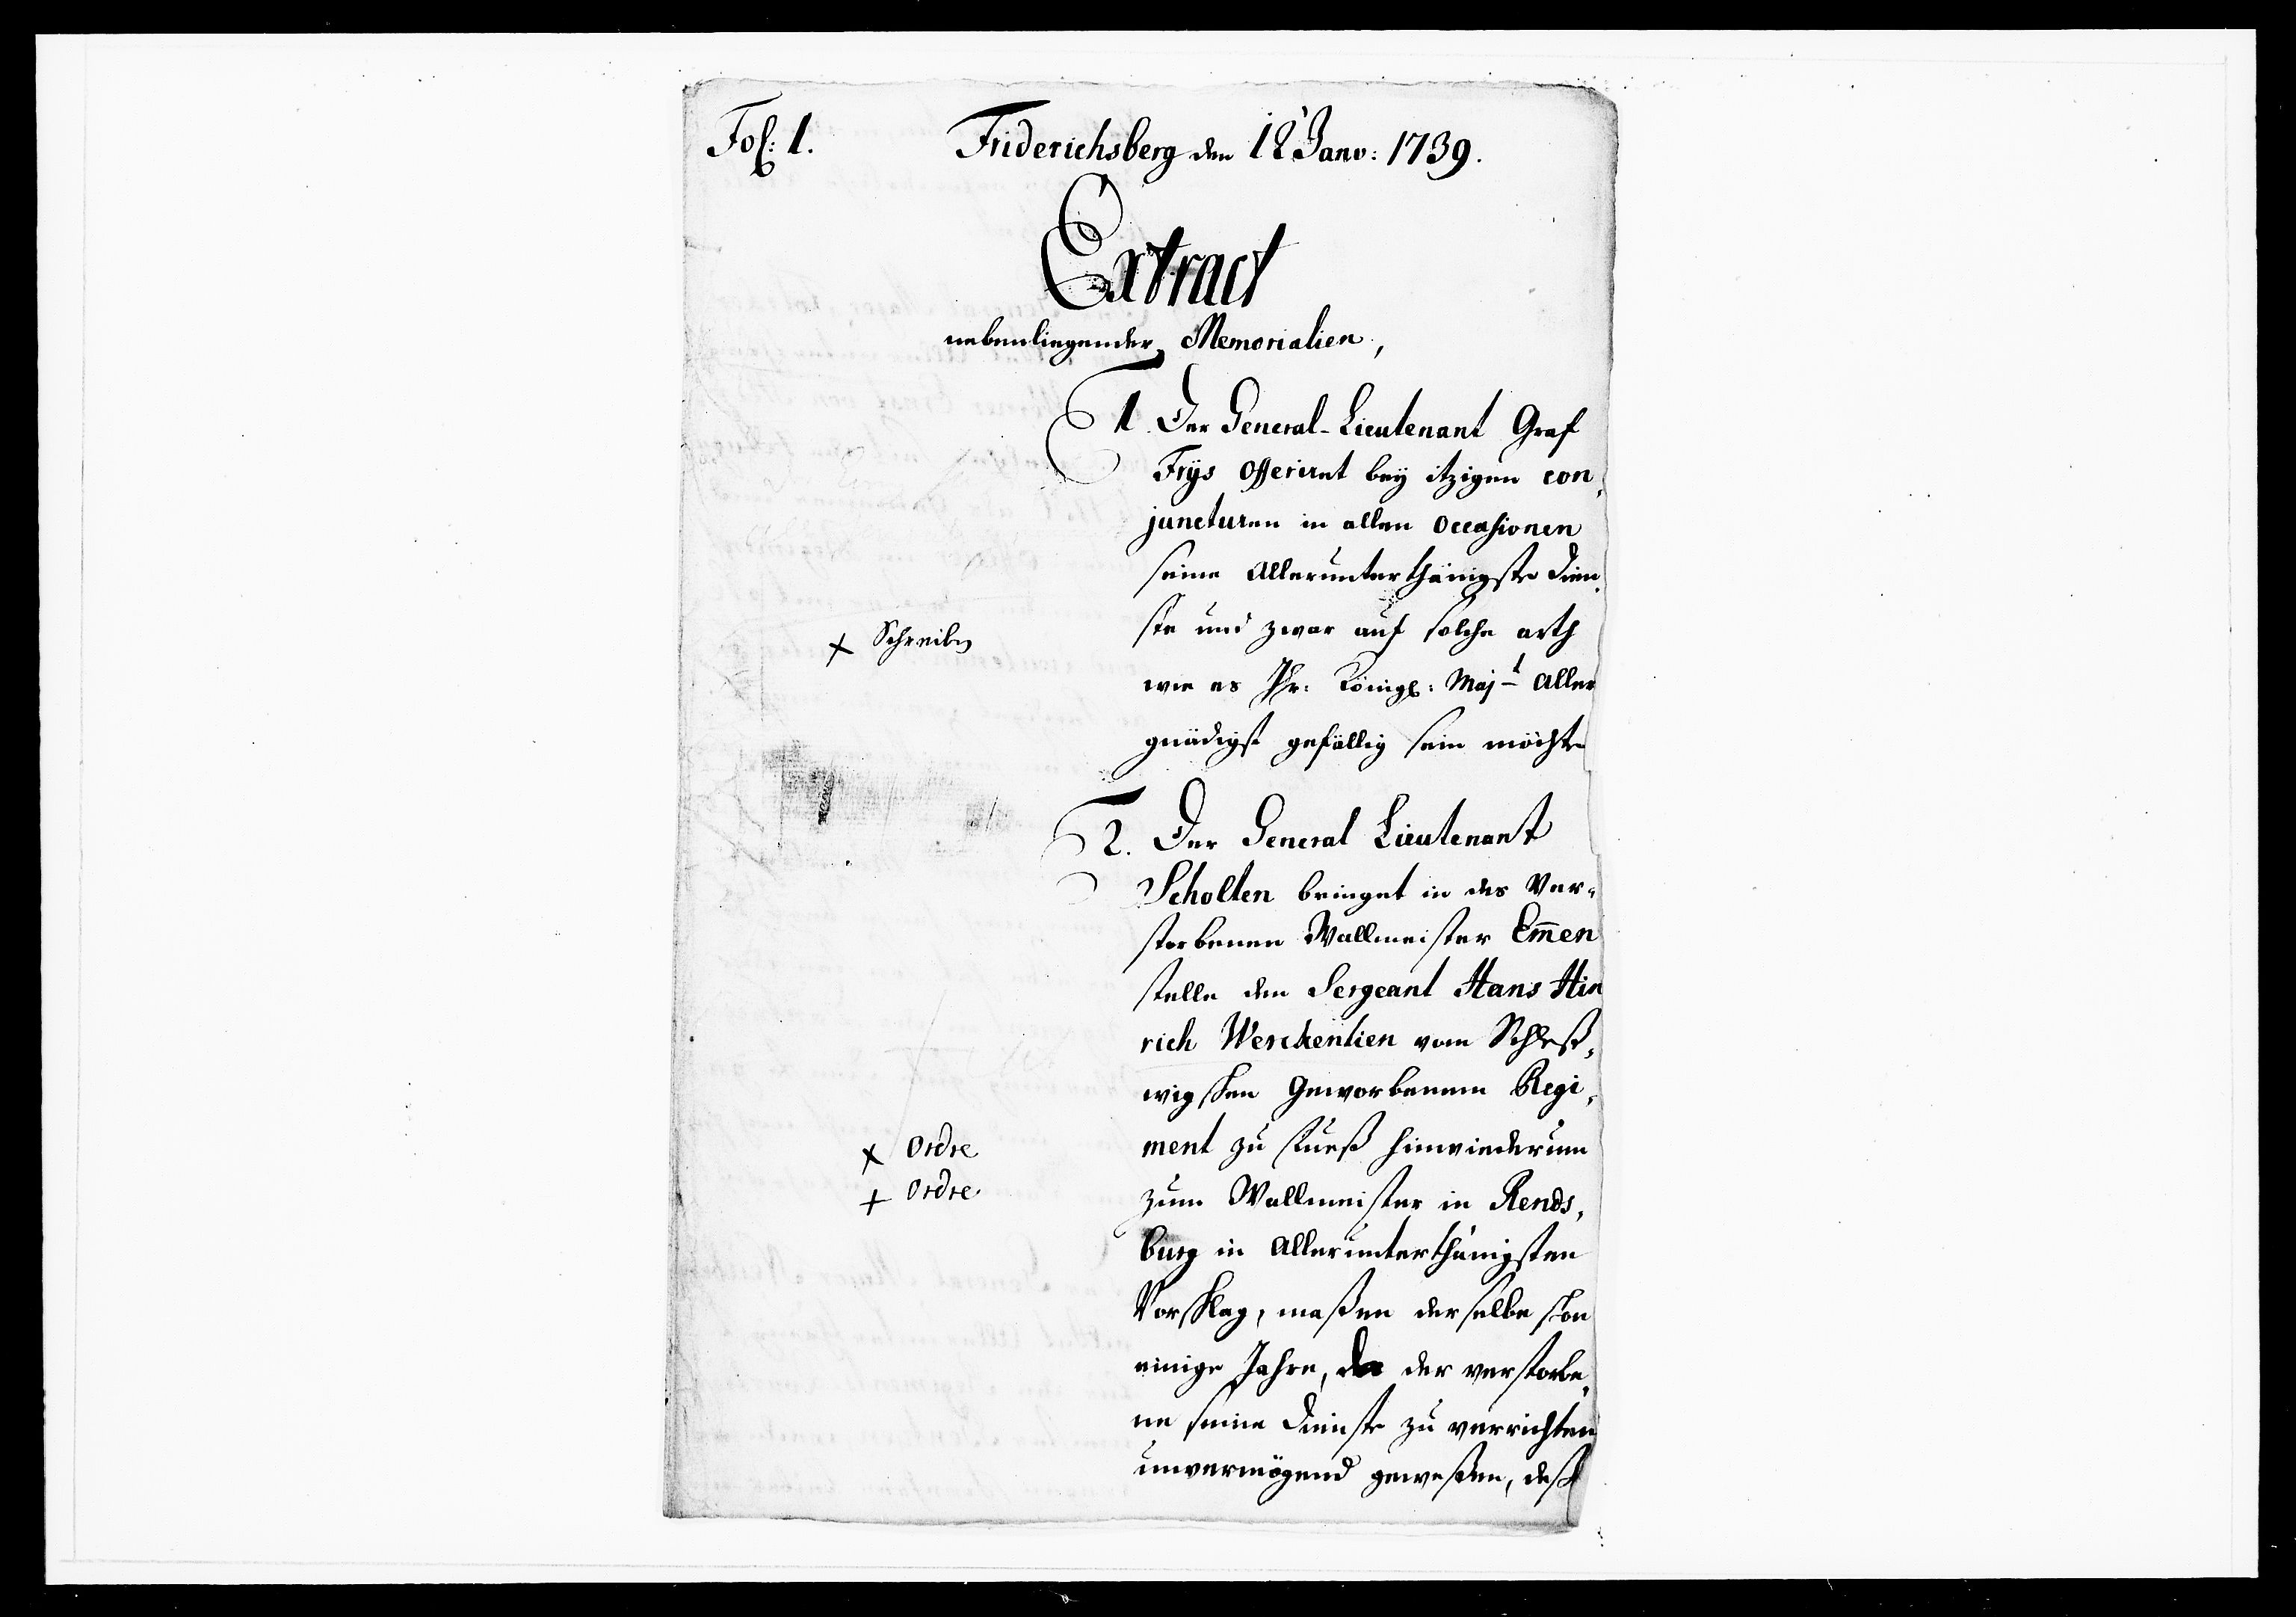 Fol: 1. Friderichsberg den 12 Janv: 1739.
Extract
nebenliegender Memorialien,
1. Der General-Lieutenant Graf
Frÿs offeriret beÿ itzigen con,
juncturen in allen occasionen
seine allerunterthänigste Dien,
ste und zwar auf solche arth
× Schreiben
wie es Ihr: Königl: Majt Aller
gnädigst gefällig sein möchte
2. Der General Lieutenant
Scholten bringet in des Ver-
storbenen Wallmeister Em̄en
stelle den Sergeant Hans Hin
rich Werckentien vom Schleß,
wigschen Geworbenem Regi,
× Ordre
ment zu Fueß hinwiederum
+ Ordre
zum Wallmeister in Rends,
burg in allerunterthänigsten
Vorschlag, maßen derselbe schon
einige Jahre, da der verstorbe,
ne seine Dienste zu verrichten
unvermögend geweßen, deß